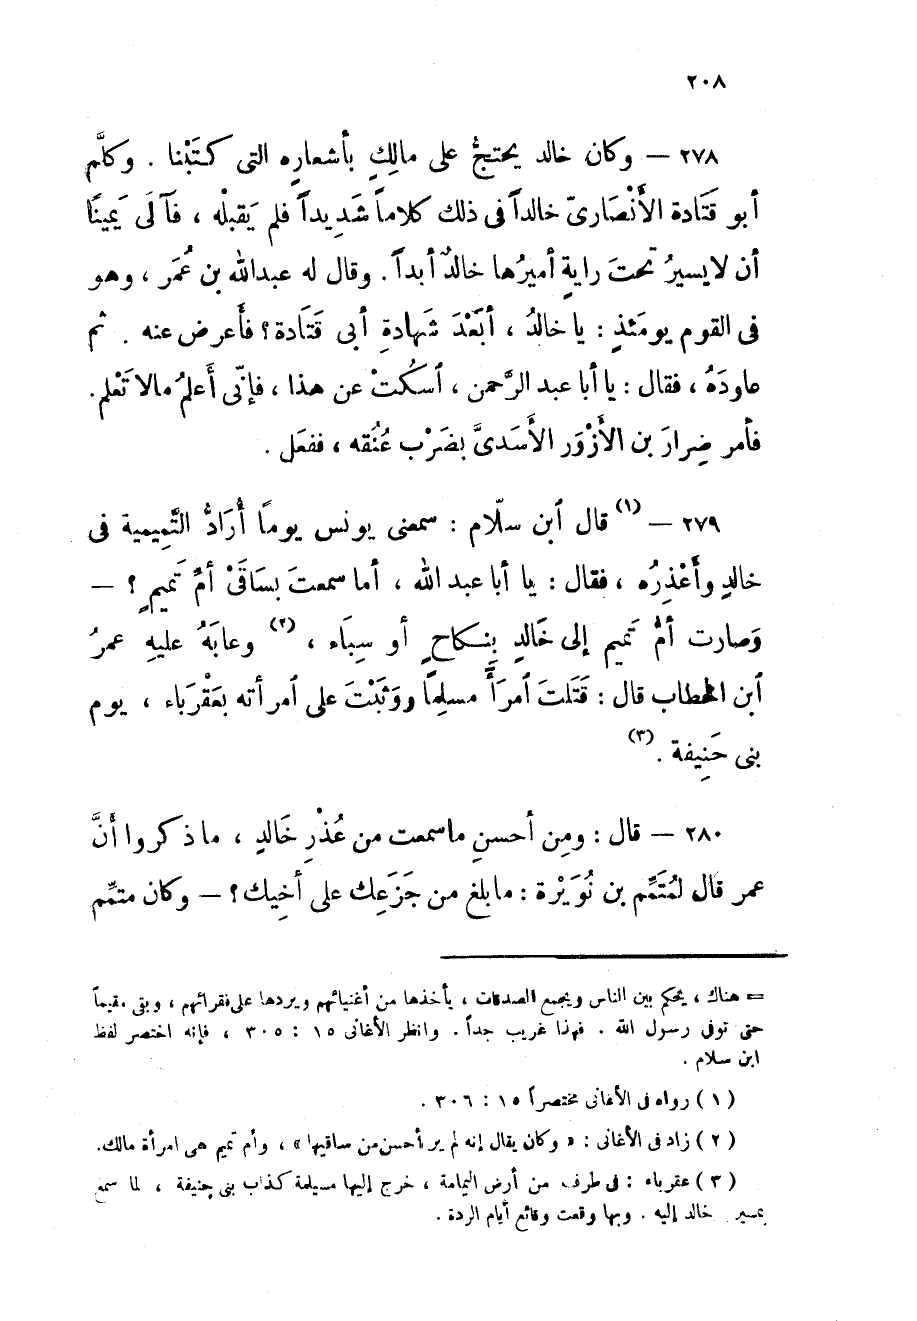 ٢٠٨
٢٧٨ — وكان خالد يحتجُّ على مالِكٍ بأشعارِه التى كتَبْنا . وكلَّم
أبو قَتَادة الأَنْصَارىّ خالداً فى ذلك كلاماً شَدِيداً فلم يَقبلْه ، فآلَى يَمِينًا
أن لا يسيرُ تحتَ رايةٍ أميرُها خالدٌ أبداً . وقال له عبدالله بن عُمَر ، وهو
فى القوم يومَئذٍ : يا خالدُ ، أبَعْدَ شَهادةِ أبى قَتَادة ؟ فأَعرض عنه . ثم
عاودَهُ ، فقال : يا أبا عبد الرَّحمن ، ٱسكُتْ عن هذا ، فإنّى أَعلمُ مالا تَعْلم.
فأمر ضِرارَ بن الأَزْوَر الأَسَدىَّ بضَرْب عُنُقه ، ففعَل .
٢٧٩ — (١) قال ٱبن سلّام : سمعنى يونس يومًا أُرَادُّ التَّمِيمية فى
خالدٍ وأَعْذِرُه ، فقال : يا أبا عبد الله ، أما سمعتَ بسَاقَىْ أمِّ تَميمٍ ؟ —
وَصارت أمُّ تَميم إلى خَالدٍ بِنكاحٍ أو سِبَاء ، (٢) وعابَهُ عليهِ عمرُ
ٱبن الخطاب قال : قَتَلتَ ٱمرَأً مسلِمًا ووَثَبْتَ على ٱمرأته بعَقْرَباء ، يوم
بنى حَنِيفة . (٣)
٢٨٠ — قال : ومِن أحسنِ ماسمعت من عُذْرِ خَالدٍ ، ماذكروا أنَّ
عمر قال لمُتَمِّم بن نُوَيْرة : مابلغ من جَزَعِك على أخِيك ؟ — وكان متمِّم
= هناك ، يحكم بين الناس ويجمع الصدقات ، يأخذها من أغنيائهم ويردها على فقرائهم ، وبقى مقيماً
حتى توفى رسول الله . فهذا غريب جداً . وانظر الأغانى ١٥ : ٣٠٥ ، فإنه اختصر لفظ
ابن سلام .
( ١ ) رواه فى الأغانى مختصراً ١٥ : ٣٠٦ .
( ٢ ) زاد فى الأغانى : « وكان يقال إنه لم ير أحسن من ساقيها » ، وأم تميم هى امرأة مالك.
( ٣ ) عقرباء : فى طرف من أرض اليمامة ، خرج إليها مسيلمة كذاب بنى حنيفة ، لما سمع
بمسير خالد إليه . وبها وقعت وقائع أيام الردة .